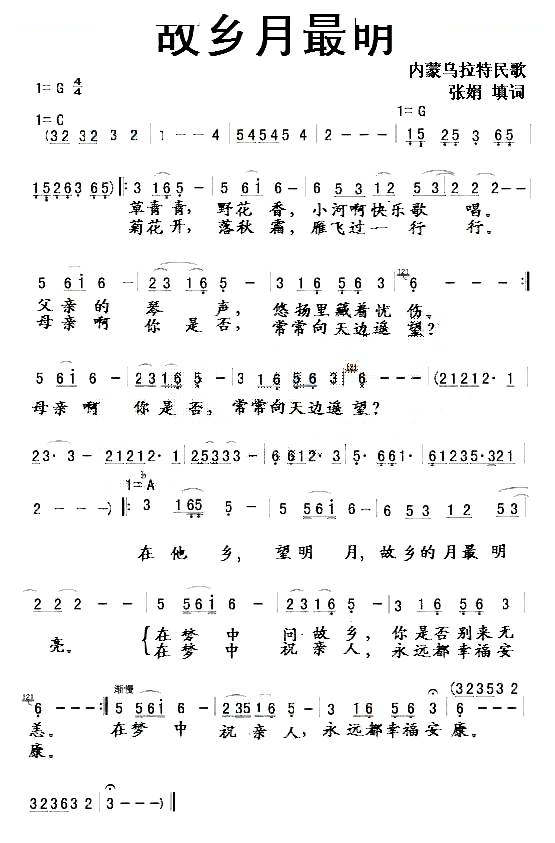 故乡月最明
内蒙乌拉特民歌
1= G 4/4
张娟 填词
1= C
1= G
(32 32 3 2 | 1 - - 4 | 5454545 4 | 2 - - - | 15 25 3 65 |
15263 65) ‖: 3 165 - | 5 6i 6 - | 6 53 12 53 | 2 2 2 - |
草青青, 野花 香, 小河啊快乐歌 唱。
菊花开, 落秋 霜, 雁飞过一 行 行。
5 6i 6 - | 23 16 5 - | 3 16 56 3 | 6 - - - :‖
父亲的 琴 声, 悠扬里藏着忧 伤。
母亲啊 你是否, 常常向天边遥 望?
5 6i 6 - | 2316 5 - | 3 16 56 3 | 6 - - - | (21212· 1
母亲啊 你是否, 常常向天边遥望?
23· 3 - | 21212· 1 | 25333 - | 6 612· 3· | 5· 661· | 61235· 321
1= A
2 - - -) ‖: 3 165 5 - | 5 56i 6 - | 6 53 3 12 53
在他 乡, 望明 月, 故乡的月最明
2 2 2 - | 5 56i 6 - | 2316 5 - | 3 16 56 3
亮。 {在梦 中 问故 乡, 你是否别来无
在梦 中 祝亲 人, 永远都幸福安
渐慢
(32352 3 2
6 - - - :‖ 5 56i 6 - | 23516 5 - | 3 16 56 3 | 6 - - -
恙。 在梦 中 祝亲人, 永远都幸福安 康。
康。
32363 2 | 3 - - -) ‖